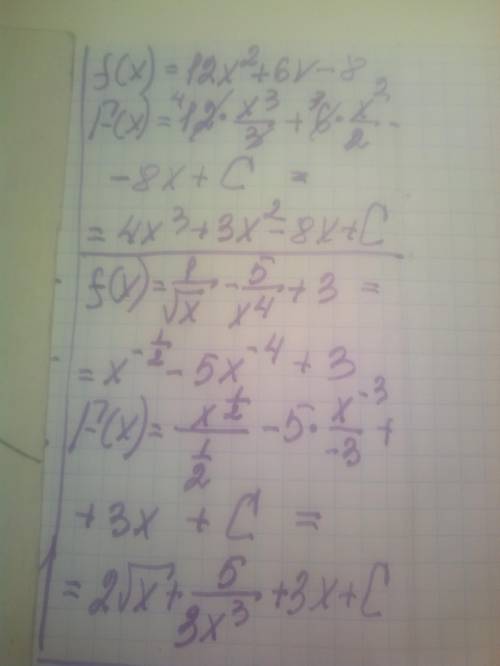 f(x) = 12x² + 6x - 8
F(x) = ⁴12 · x³/3 + ³6 · x²/2 -
- 8x + C =
= 4x³ + 3x² - 8x + C
f(x) = 1/√x - 5/x⁴ + 3 =
= x^(-1/2) - 5x⁻⁴ + 3
F(x) = x^(1/2)/(1/2) - 5 · x⁻³/-3 +
+ 3x + C =
= 2√x + 5/3x³ + 3x + C